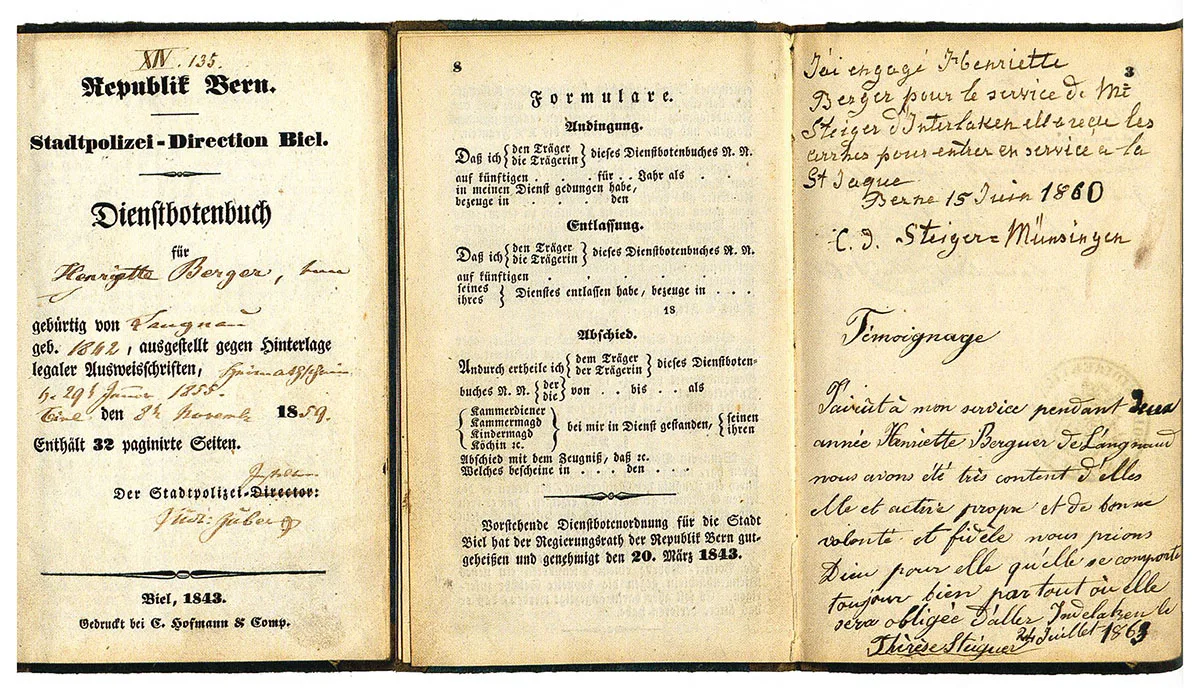 XIV. 135.
Republik Bern.
Stadtpolizei-Direction Biel.
Dienstbotenbuch
für
Henriette Berger,
gebürtig von Langnau
geb. 1842, ausgestellt gegen Hinterlage
legaler Ausweisschriften, Heimathschein
29t Januar 1855.
Biel den 8t Novemb 1859.
Enthält 32 paginirte Seiten.
Der Stadtpolizei-Director:
Biel, 1843.
Gedruckt bei C. Hofmann & Comp.
8
Formulare.
Andingung.
Daß ich { den Träger / die Trägerin } dieses Dienstbotenbuches N. N.
auf künftigen . . . . für . . Jahr als . .
in meinen Dienst gedungen habe,
bezeuge in . . . den
Entlassung.
Daß ich { den Träger / die Trägerin } dieses Dienstbotenbuches N. N.
auf künftigen . . . . . .
seines / ihres } Dienstes entlassen habe, bezeuge in . . .
18
Abschied.
Andurch ertheile ich { dem Träger / der Trägerin } dieses Dienstboten-
buches N. N. { der / die } von . . bis . . als
{ Kammerdiener / Kammermagd / Kindermagd / Köchin ec. } bei mir in Dienst gestanden, { seinen / ihren
Abschied mit dem Zeugniß, daß ec.
Welches bescheine in . . . den . . .
Vorstehende Dienstbotenordnung für die Stadt
Biel hat der Regierungsrath der Republik Bern gut-
geheißen und genehmigt den 20. März 1843.
3
J'ai engagé Henriette
Berger pour le service de Mr
Steiger d'Interlaken ell a reçu les
arrhes pour entrer en service a la
St Jaque
Berne 15 Juin 1860
C. J. Steiger=Münsingen
Témoignage
J'ai eût à mon service pendant deux
année Henriette Berguer de Langnaud
nous avons été très content d'elles
elle et active propre et de bonne
volonté et fidèle nous prions
Dieu pour elle qu'elle se comporte
toujour bien partout où elle
sera obligée d'aller Indelaken le
Thérèse Steiguer 24 Juillet 1863